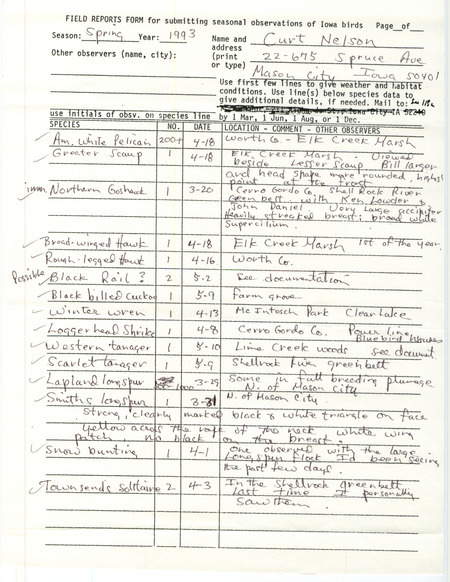 FIELD REPORTS FORM for submitting seasonal observations of Iowa birds Page__of__
Season: Spring Year: 1993 Name and Curt Nelson
address 22-675 Spruce Ave
Other observers (name, city): (print
or type) Mason City Iowa 50401
Use first few lines to give weather and habitat
conditions. Use line(s) below species data to
give additional details, if needed. Mail to:
use initials of obsv. on species line by 1 Mar, 1 Jun, 1 Aug, or 1 Dec.
SPECIES NO. DATE LOCATION - COMMENT - OTHER OBSERVERS
Am. White Pelican 200+ 4-18 Worth Co. - Elk Creek Marsh
Greater Scaup 1 4-18 Elk Creek Marsh. Viewed
beside Lesser Scaup Bill larger
and head shape more rounded, highest
point at the front
imm Northern Goshawk 1 3-20 Cerro Gordo Co Shell Rock River
Green belt. with Ken Lowder &
John Daniel Very Large accipiter
Heavily streaked breast; broad white
supercilium.
Broad-winged Hawk 1 4-18 Elk Creek Marsh 1st of the year
Rough-legged Hawk 1 4-16 Worth Co.
Possible Black Rail? 2 5-2 See documentation
Black billed cuckoo 1 5-9 farm grove
Winter wren 1 4-13 McIntosh Park Clear Lake
Loggerhead Shrike 1 4-8 Cerro Gordo Co. Power line
Bluebird houses
Western tanager 1 5-10 Lime Creek woods see document
Scarlet tanager 1 5-9 Shellrock River greenbelt
Lapland longspur 1000 3-29 Some in full breeding plumage
N. of Mason City
Smiths longspur 1 3-31 N. of Mason City
Strong, clearly marked black & white triangle on face
yellow across the nape of the neck white wing
patch no black on the breast.
Snow bunting 1 4-1 One observed with the large
Longspur flock I'd been seeing
the past few days.
Townsends Solitaire 2 4-3 In the Shellrock greenbelt
last time I personally
saw them.